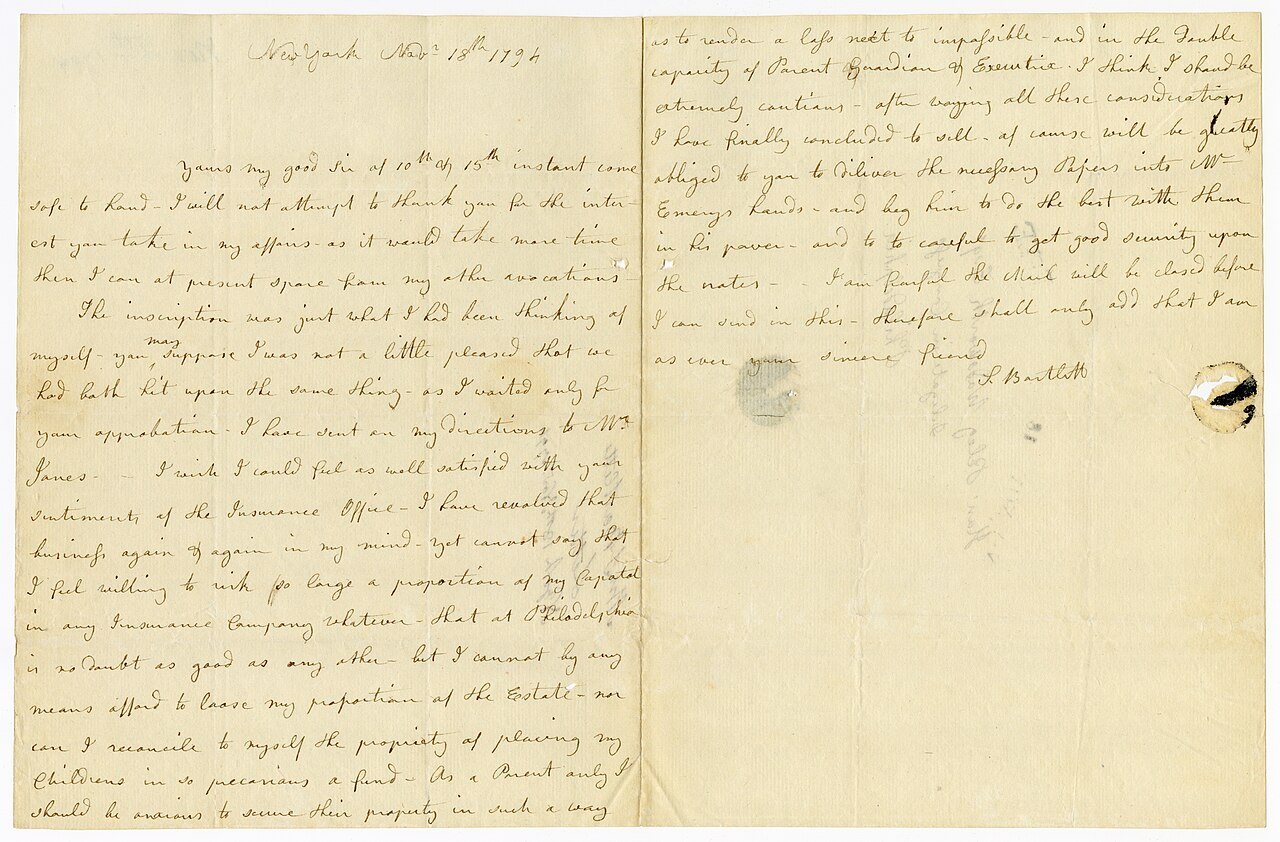 New York Nov.r 18th 1794
Yours my good Sir of 10th & 15th instant come
safe to hand - I will not attempt to thank you for the inter-
est you take in my affairs - as it would take more time
then I can at present spare from my other avocations -
The inscription was just what I had been thinking of
myself - you may suppose I was not a little pleased that we
had both hit upon the same thing - as I waited only for
your approbation - I have sent on my directions to Mr.
Jones - - I wish I could feel as well satisfied with your
sentiments of the Insurance Office - I have revolved that
business again & again in my mind - yet cannot say that
I feel willing to risk so large a proportion of my Capatal
in any Insurance Company whatever - that at Philadelphia
is no doubt as good as any other - but I cannot by any
means afford to loose my proportion of the Estate - nor
can I reconcile to myself the propriety of placing my
Childrens in so precarious a fund - As a Parent only I
should be anxious to secure their property in such a way
as to render a loss next to impossible - and in the Double
capacity of Parent Guardian & Executrix. I think I shoud be
extremely cautious - after waying all these considerations
I have finally concluded to sell - of course will be greatly
obliged to you to diliver the necessary Papers into Mr
Emerys hands - and beg him to do the best with them
in his power - and to to careful to get good security upon
the notes - - I am fearful the Mail will be closed before
I can send in this - therefore shall only add that I am
as ever your sincere friend
S. Bartlett